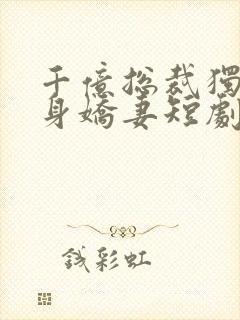 千億總裁獨
身嬌妻短劇
錢彩虹